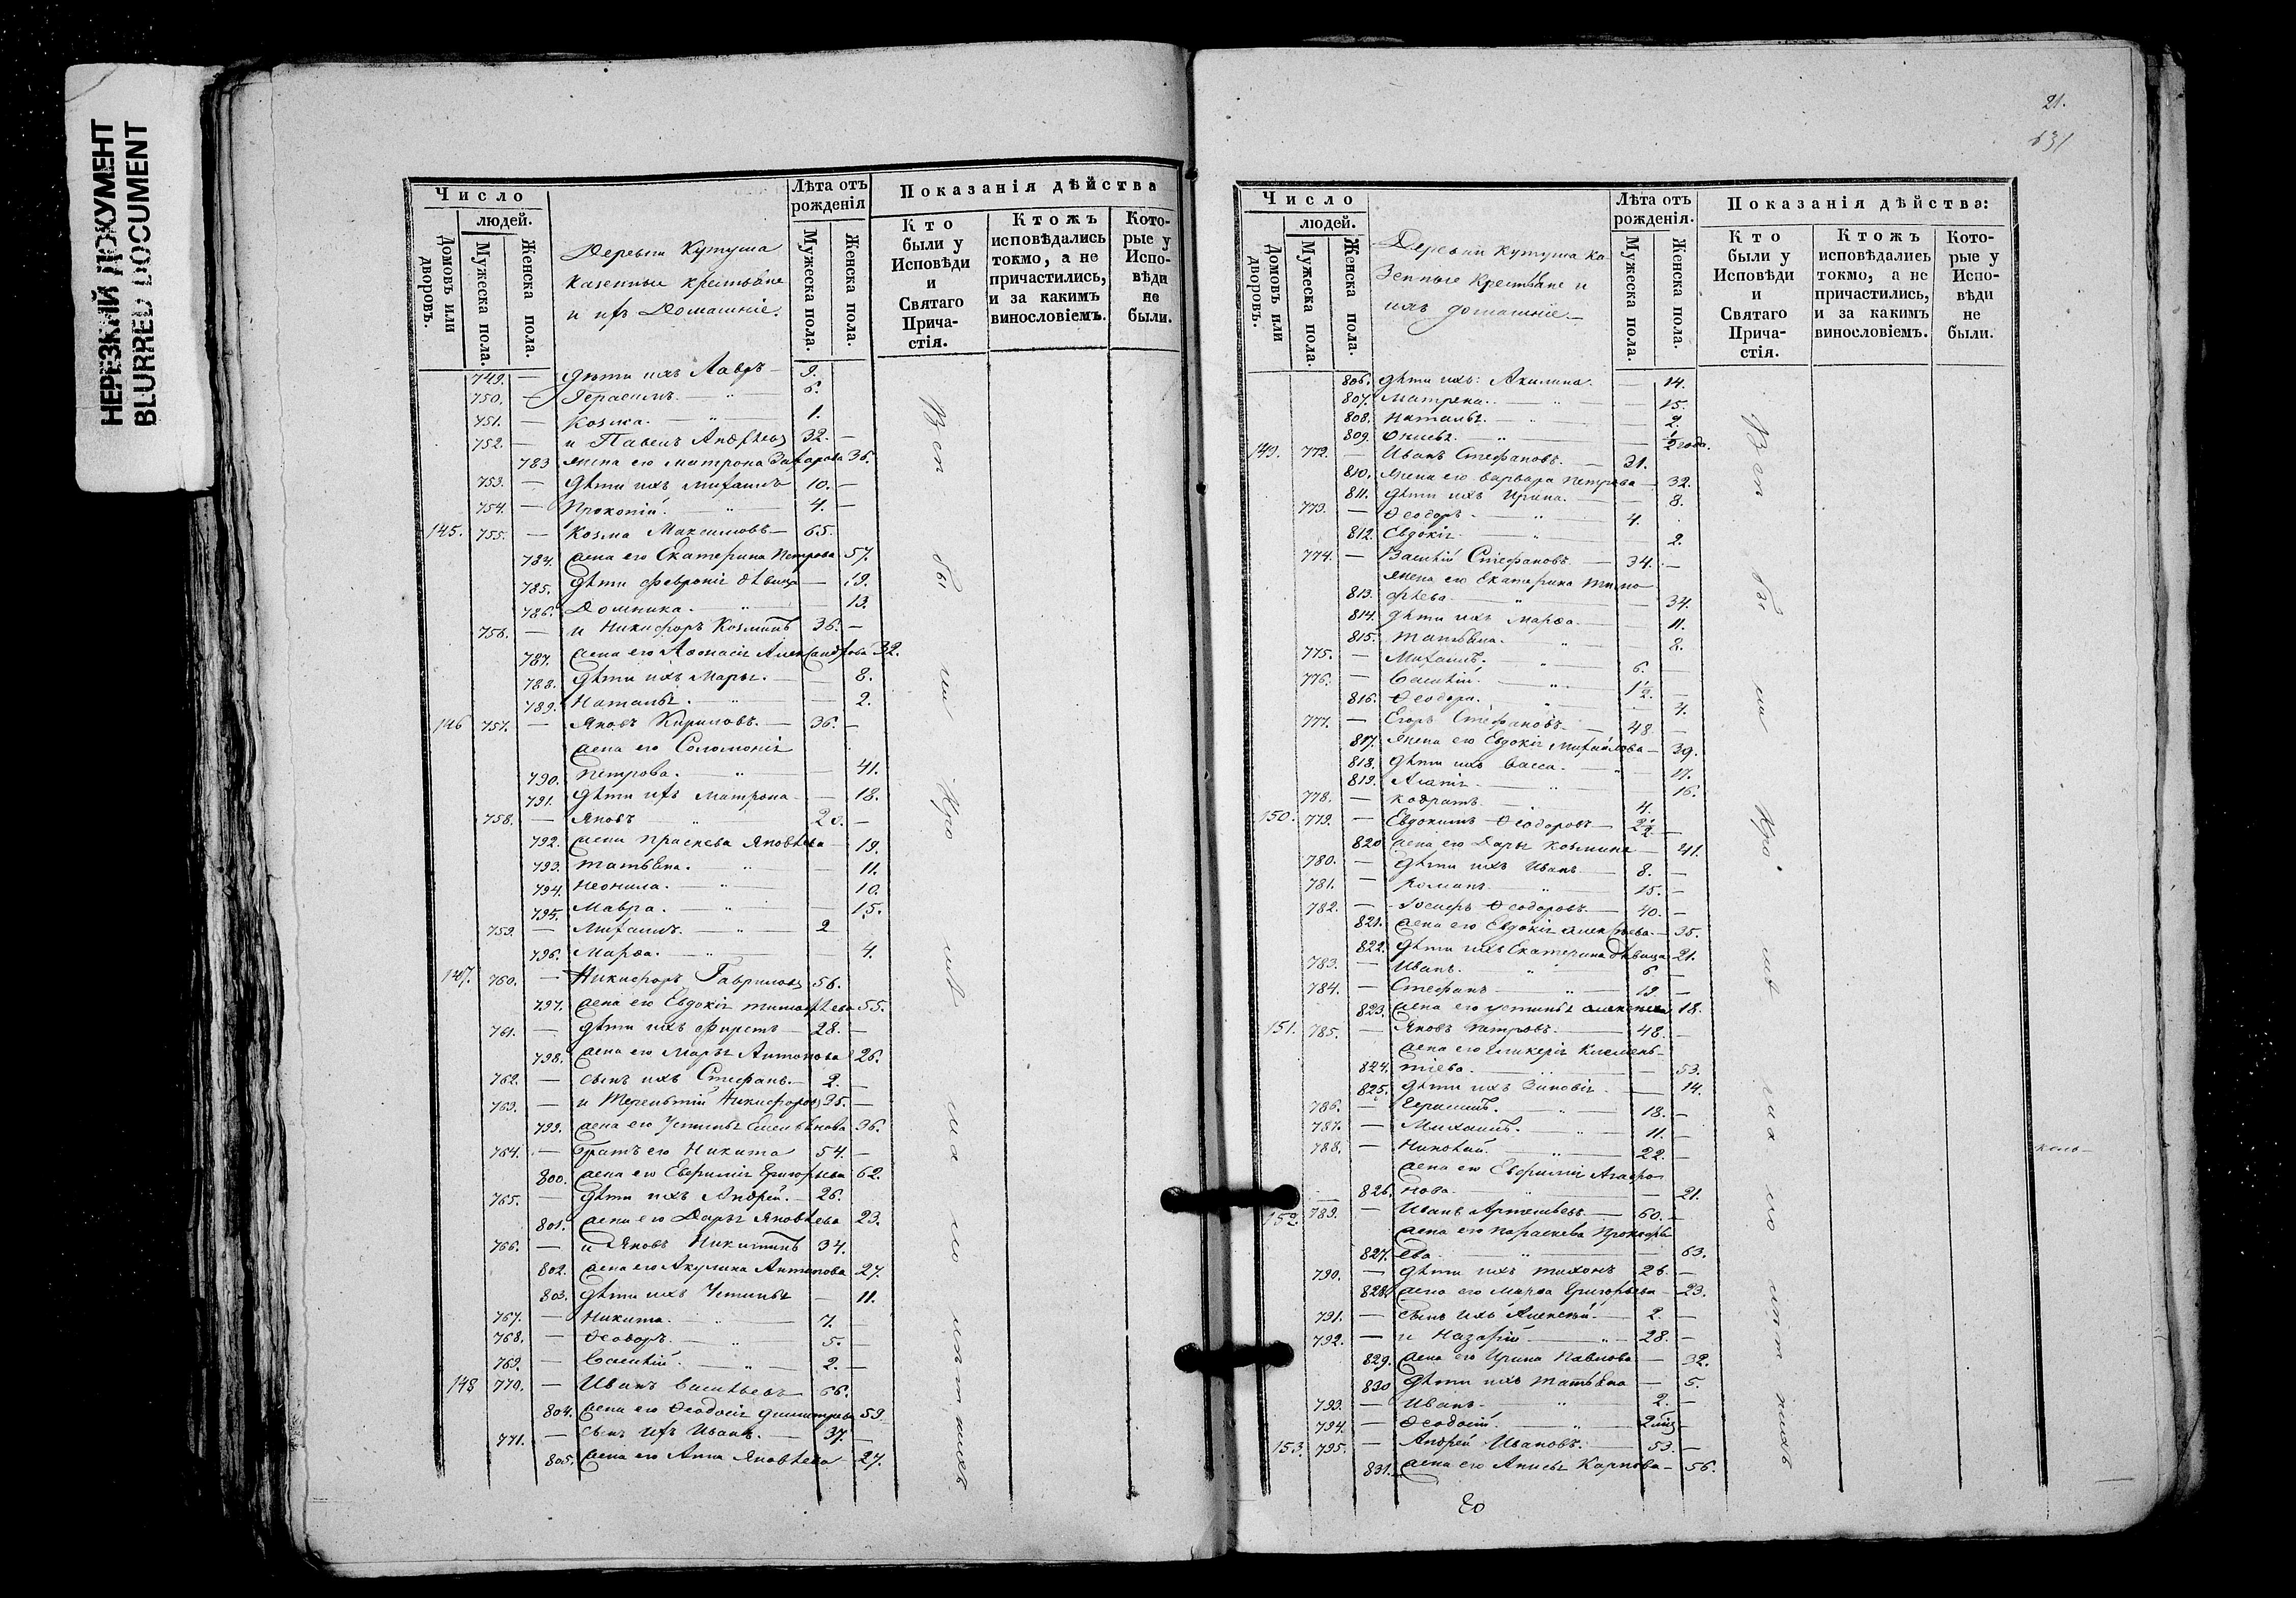 НЕРЕЗКИЙ ДОКУМЕНТ
BLURRED DOCUMENT
Число
людей.
Домовъ или дворовъ.
Мужеска пола.
Женска пола.
Деревни Кутуша
казенные крестьяне
и ихъ Домашніе.
Лѣта отъ рожденія
Мужеска пола.
Женска пола.
Показанія дѣйства
Кто были у Исповѣди и Святаго Прича-стія.
Ктожъ исповѣдались токмо, а не причастились, и за какимъ винословіемъ.
Кото-рые у Испо-вѣди не были.
749. — дѣти ихъ Лавръ — 9.
750. — Герасимъ. — " — 6.
751. — Козма. — " — 1.
752. — и Павелъ Андрѣевъ 32. —
783 жена его Матрона Захарова 36.
753. — дѣти ихъ Михаилъ 10. —
754. — Прокопій. — " — 4. —
145. 755. — Козма Максимовъ — 65.
784. жена его Екатерина Петрова 57.
785. дѣти Февронія дѣвица — 19.
786. Домника. — " — 13.
756. — и Никифоръ Козминъ 36. —
787. жена его Афонасія Александрова 32.
788. дѣти ихъ Марья. — 8.
789. Наталья. — " — 2.
146 757. — Яковъ Кириловъ. — 36. —
жена его Соломонія
790. Петрова. — " — 41.
791. дѣти ихъ Матрона — 18.
758. — Яковъ " 20. —
792. жена Праскева Яковлева — 19.
793. Татьяна. " — 11.
794. Неонила. — " — 10.
795. Мавра. — " — 15.
759. — Михаилъ. — " — 2
796. Марѳа. — " — 4.
147. 760. — Никифоръ Гавриловъ 56.
797. жена его Евдокія Тимофѣева 55.
761. — дѣти ихъ Фирстъ — 28. —
798. жена его Марья Антонова 26.
762. — сынъ ихъ Стефанъ. — 2. —
763. — и Терентій Никифоровъ 35. —
799. жена его Устинья Емельянова 36.
764. — братъ его Никита 54. —
800. жена его Евфимія Григорьева 62.
765. — дѣти ихъ Андрей. — 26.
801. жена его Дарья Яковлева 23.
766. — и Яковъ Никитинъ 34.
802. жена его Акулина Антонова 27.
803. дѣти ихъ Устинья — 11.
767. — Никита. — " — 7. —
768. — Ѳеодоръ. — " 5. —
769. — Василій. — " — 2. —
148 770. — Иванъ Васильевъ 66.
804. жена его Ѳеодосія Димитрева 59.
771. — сынъ ихъ Иванъ. — 37. —
805. жена его Анна Яковлева — 27.
Вси бы ли у ис
21.
631
Число
людей.
Домовъ или дворовъ.
Мужеска пола.
Женска пола.
Деревни Кутуша ка-
зенные Крестьяне и
ихъ домашніе. —
Лѣта отъ рожденія.
Мужеска пола.
Женска пола.
Показанія дѣйства:
Кто были у Исповѣди и Святаго Прича-стія.
Ктожъ исповѣдались токмо, а не причастились, и за какимъ винословіемъ.
Кото-рые у Испо-вѣди не были.
806. дѣти ихъ: Акилина. — 14.
807. Матрена. — " — 15.
808. Наталья. — " — 2.
809. Онисья. " — 1/2 года.
149. 772. — Иванъ Стефановъ. — 31.
810. жена его Варвара Петрова — 32.
811. дѣти ихъ Ирина. — 8.
773. — Ѳеодоръ. — " — 4.
812. Евдокія " — 2.
774. — Василій Стефановъ. — 34. —
жена его Екатерина Тимо-
813. фѣева. " — 34.
814. дѣти ихъ Марѳа. — 11.
815. Татьяна. " — 8.
775. — Михаилъ. — " — 6. —
776. — Василій. " — 1 1/2. —
816. Ѳеодора. " — 4.
777. — Егоръ Стефановъ. — 48 —
817. жена его Евдокія Михайлова — 39.
818. дѣти ихъ Васса. — " — 17.
819. Агапія. — " — 16.
778. — Кодратъ. " — 4. —
150. 779. — Евдокимъ Ѳеодоровъ — 22. —
820 жена его Дарья Козмина — 41.
780. — дѣти ихъ Иванъ. — 8. —
781. — Романъ. " — 15. —
782. — Іосифъ Ѳеодоровъ. — 40. —
821. жена его Евдокія Алексѣева. — 35.
822. дѣти ихъ Екатерина дѣвица 21.
783. — Иванъ. " — 6 —
784. — Стефанъ " — 19. —
823. жена его Устинья 18.
151. 785. — Яковъ Петровъ. — 48. —
жена его Гликерія Клемень-
824. тіева. " — 53.
825. дѣти ихъ Зиновія — 14.
786. — Герасимъ. " — 18. —
787. — Михаилъ. " — 11. —
788. — Николай. " — 22. —
жена его Евфимія Агафо-
826. нова. " — 21.
152. 789. — Иванъ Артемьевъ — 60. —
жена его Параскева Прокофь
827. ева. " — 63.
790. — дѣти ихъ Тихонъ 26. —
828. жена его Марѳа Григорьева — 23.
791. — сынъ ихъ Алексѣй — 2. —
792. — и Назарій " — 28. —
829. жена его Ирина Павлова — 32.
830 дѣти ихъ Татьяна — 5.
793. — Иванъ " 2. —
794. — Ѳеодосій. " —
153. 795. — Андрей Ивановъ. — 53. —
831. жена его Анисья Карпова — 56.